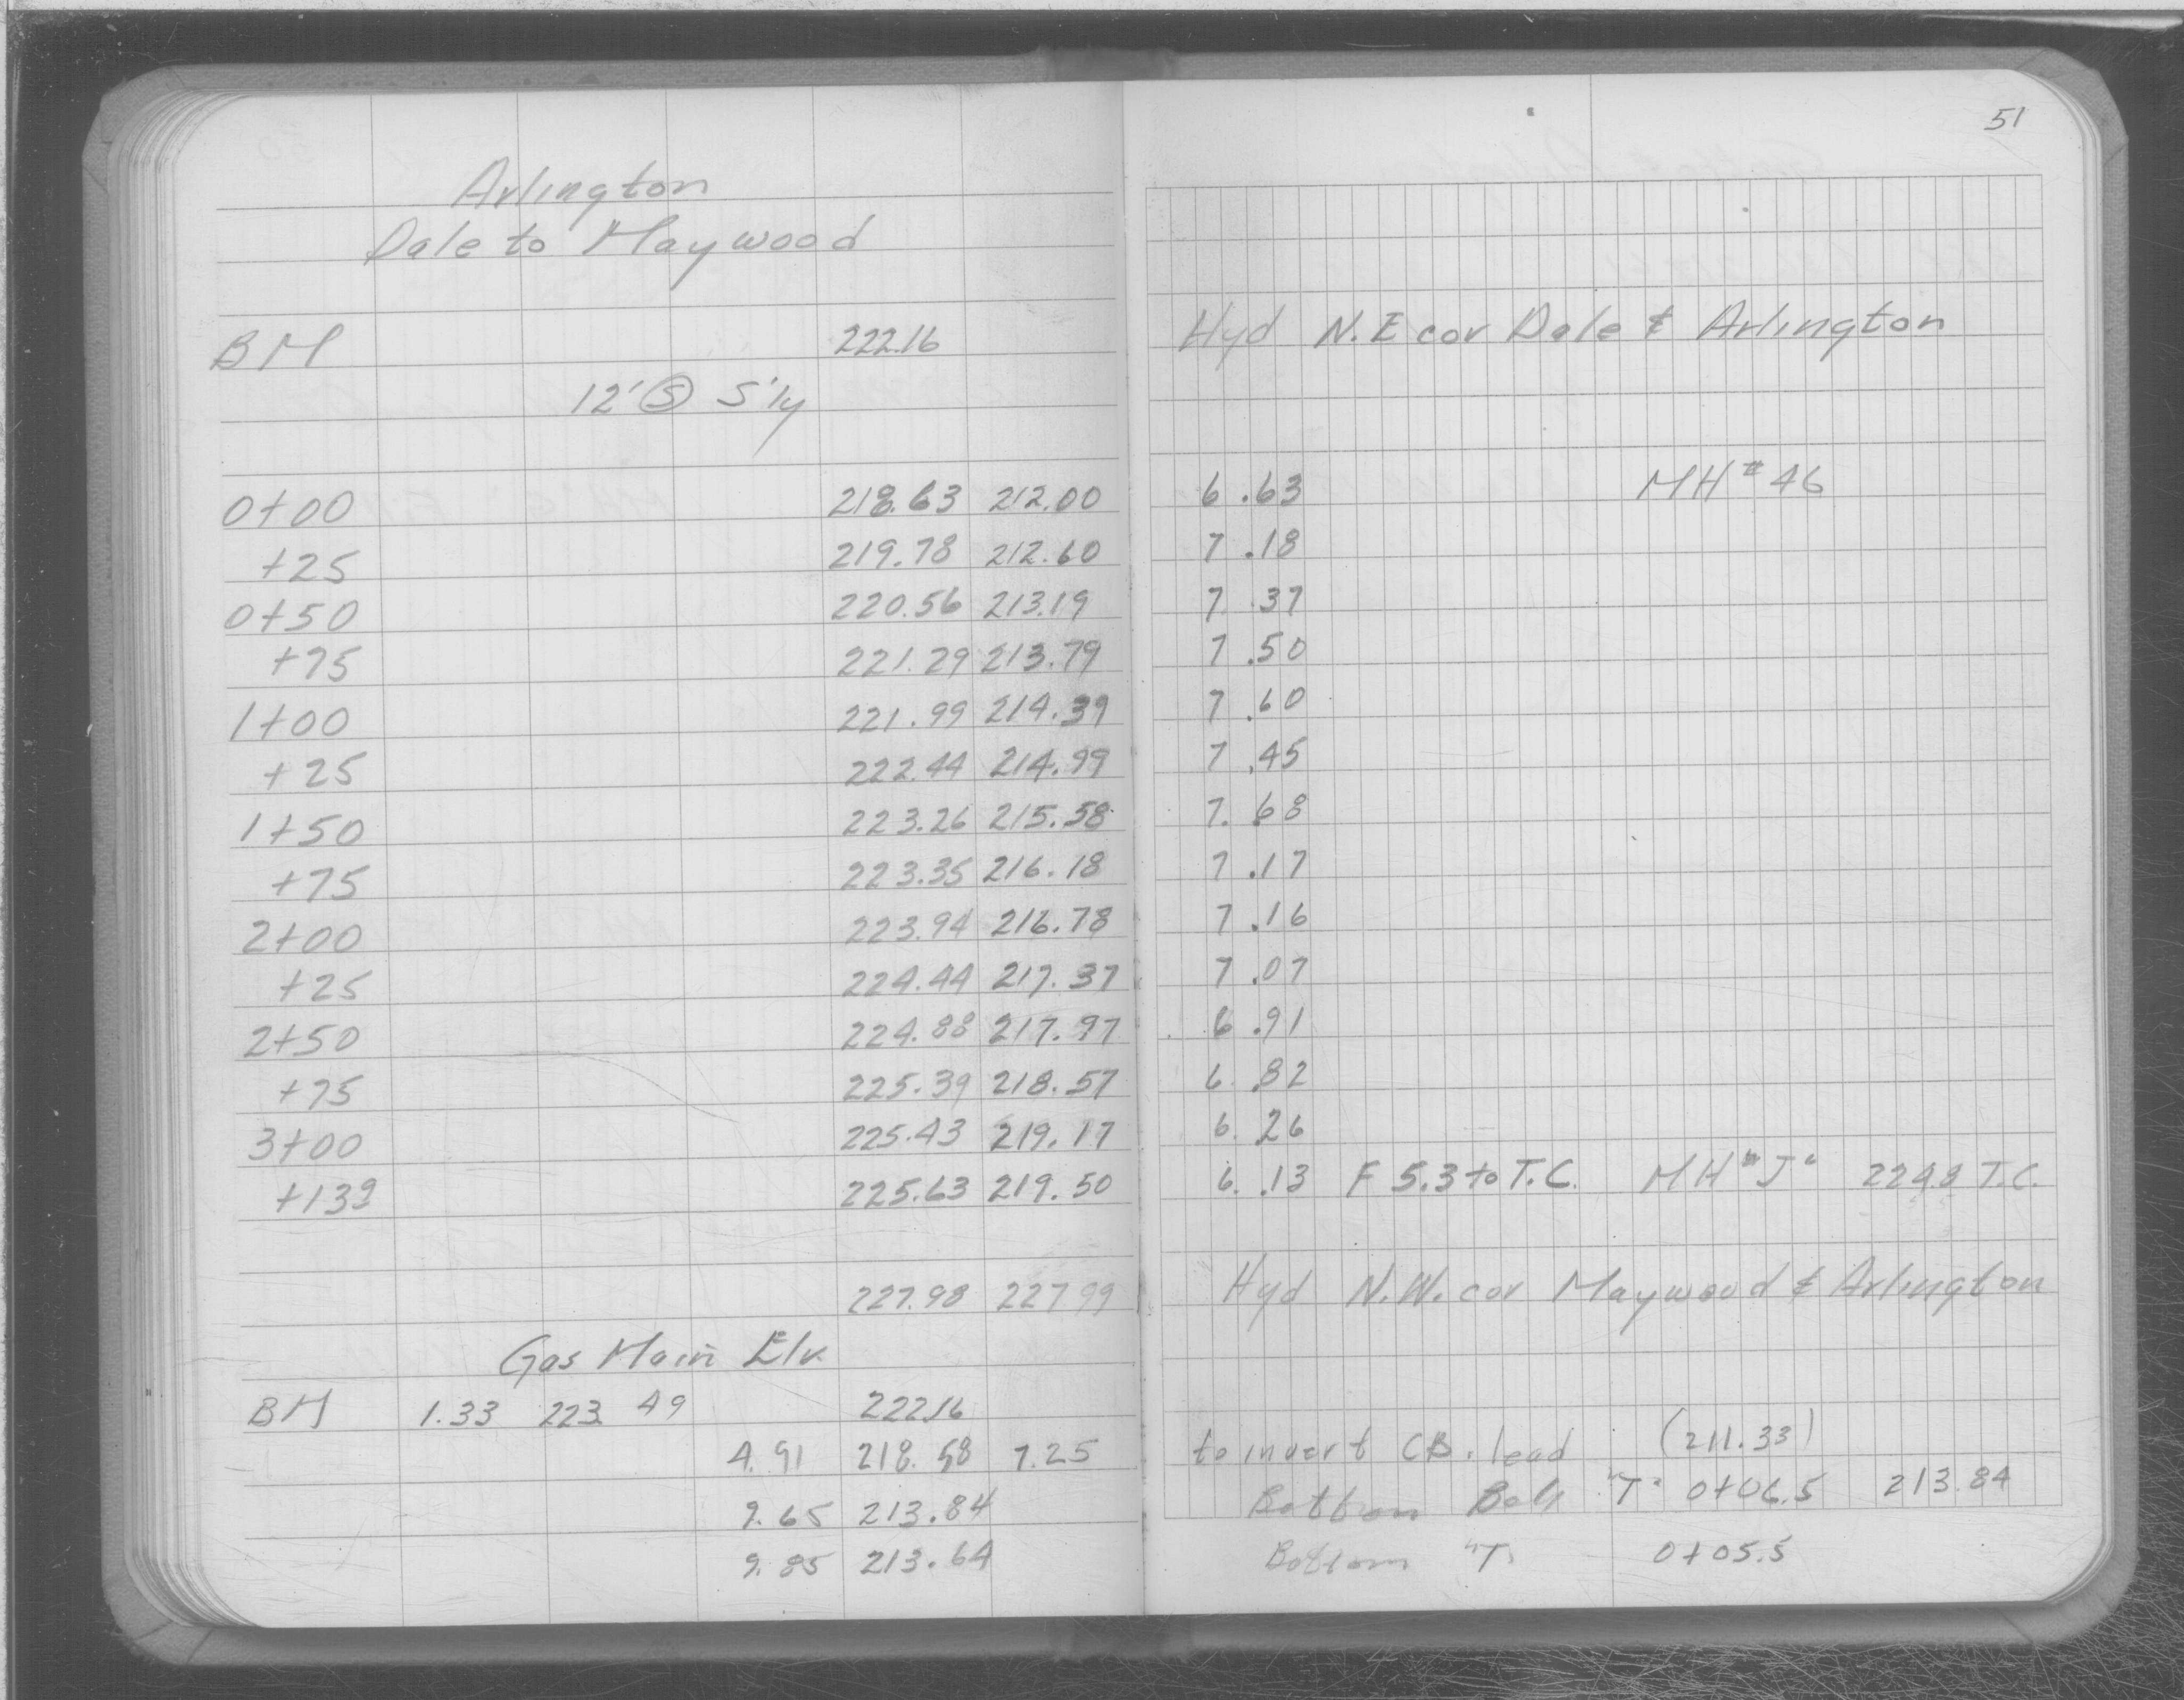 51
Arlington
Dale to Maywood
BM 222.16 Hyd N.E cor Dale & Arlington
12' Ⓢ S'ly
0+00 218.63 212.00 6.63 MH #46
+25 219.78 212.60 7.18
0+50 220.56 213.19 7.37
+75 221.29 213.79 7.50
1+00 221.99 214.39 7.60
+25 222.44 214.99 7.45
1+50 223.26 215.58 7.68
+75 223.35 216.18 7.17
2+00 223.94 216.78 7.16
+25 224.44 217.37 7.07
2+50 224.88 217.97 6.91
+75 225.39 218.57 6.82
3+00 225.43 219.17 6.26
+139 225.63 219.50 6.13 F 5.3 to T.C. MH "J" 224.8 T.C.
227.98 227.99 Hyd N.W. cor Maywood & Arlington
Gas Main Elv.
BM 1.33 223.49 222.16
4.91 218.58 7.25 to invert CB. lead (211.33)
9.65 213.84 Bottom Bell "T" 0+06.5 213.84
9.85 213.64 Bottom "T" 0+05.5